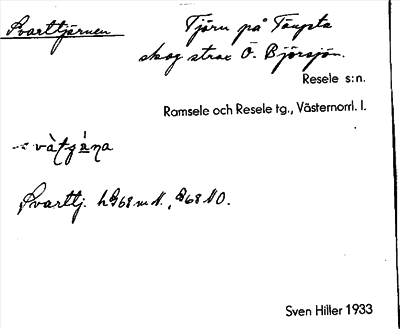 Svarttjärnen
Tjärn på Tängsta
skog strax Ö. Björnsjön.
Resele s:n.
Ramsele och Resele tg., Västernorrl. l.
Svarttj. h 968 m N.
Sven Hiller 1933